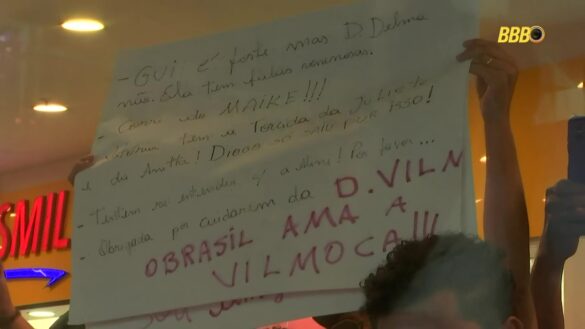 BBB
- GUI: é forte mas D. Delma
não. Ela tem falas venenosas.
- Corre do MAIKE!!!
tem a Torcida da
e da Anitta! Diogo só saiu por ISSO!
- Tentem se entender c/ a Aline! Por favor...
- Obrigada por cuidarem da D. VILM
O BRASIL AMA A
VILMOCA!!!
SMIL